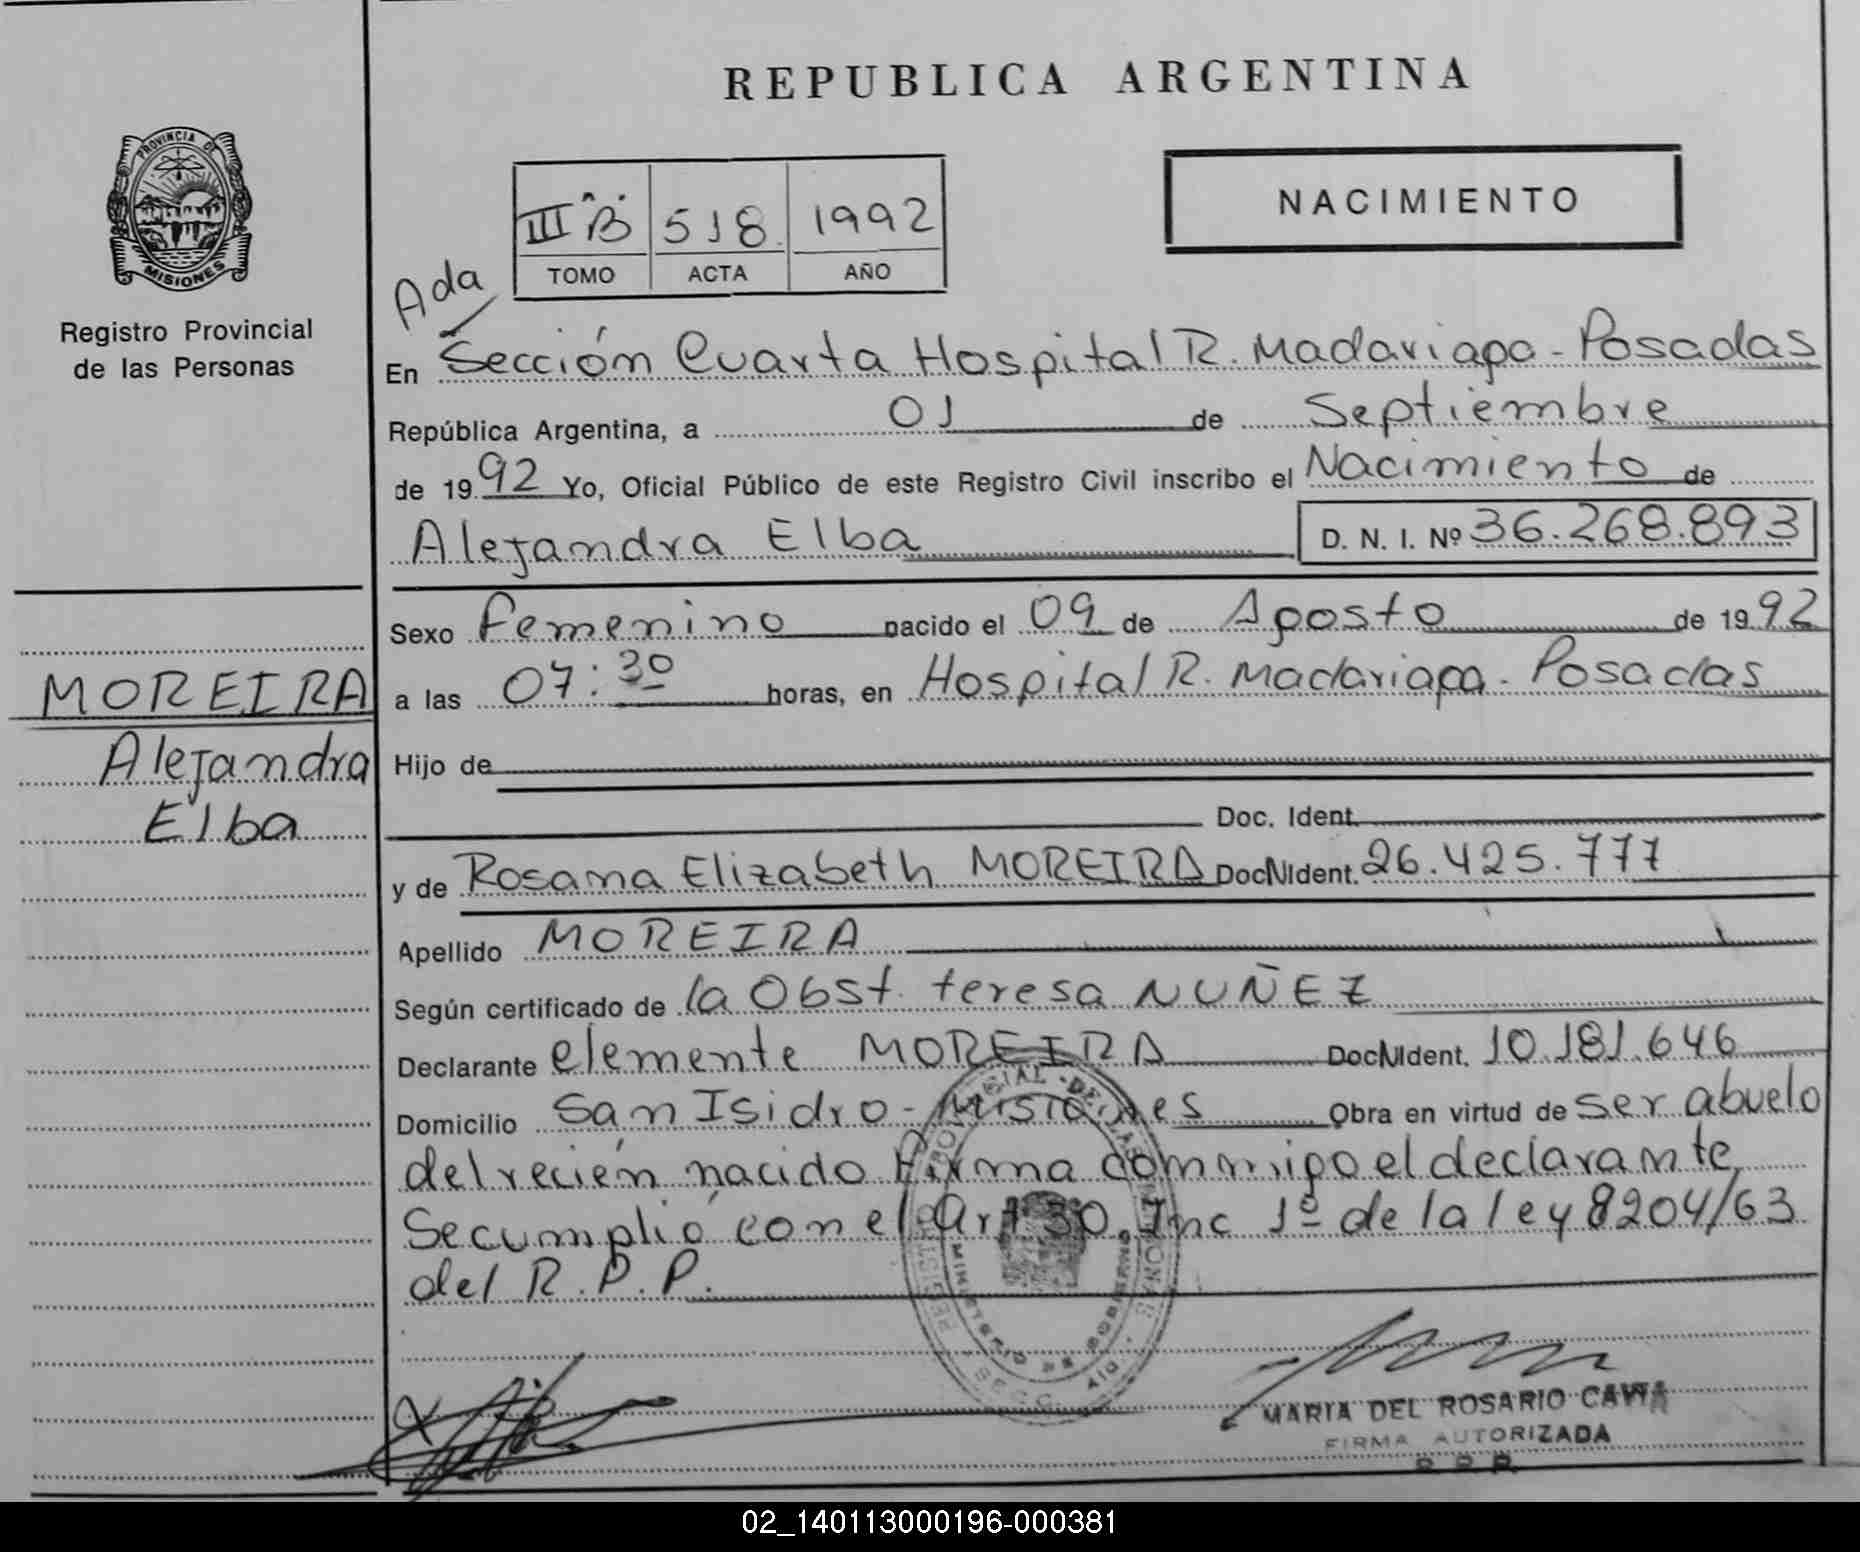 REPUBLICA ARGENTINA
PROVINCIA DE
MISIONES
Registro Provincial
de las Personas
NACIMIENTO
III B 518 1992
TOMO ACTA AÑO
Ada
En Sección Cuarta Hospital R. Madariaga - Posadas
República Argentina, a 01 de Septiembre
de 1992 Yo, Oficial Público de este Registro Civil inscribo el Nacimiento de
Alejandra Elba D. N. I. Nº 36.268.893
Sexo femenino nacido el 09 de Agosto de 1992
MOREIRA
a las 07:30 horas, en Hospital R. Madariaga - Posadas
Alejandra
Hijo de
Elba
Doc. Ident.
y de Rosana Elizabeth MOREIRA Doc N Ident. 26.425.777
Apellido MOREIRA
Según certificado de la Obst. teresa NUÑEZ
Declarante clemente MOREIRA Doc N Ident. 10.181.646
Domicilio San Isidro - Misiones Obra en virtud de ser abuelo
del recién nacido Firma conmigo el declarante
Se cumplió con el Art 30 Inc 1º de la ley 8204/63
del R.P.P.
MINISTERIO DE GOBIERNO
MARIA DEL ROSARIO
FIRMA AUTORIZADA
02_140113000196-000381